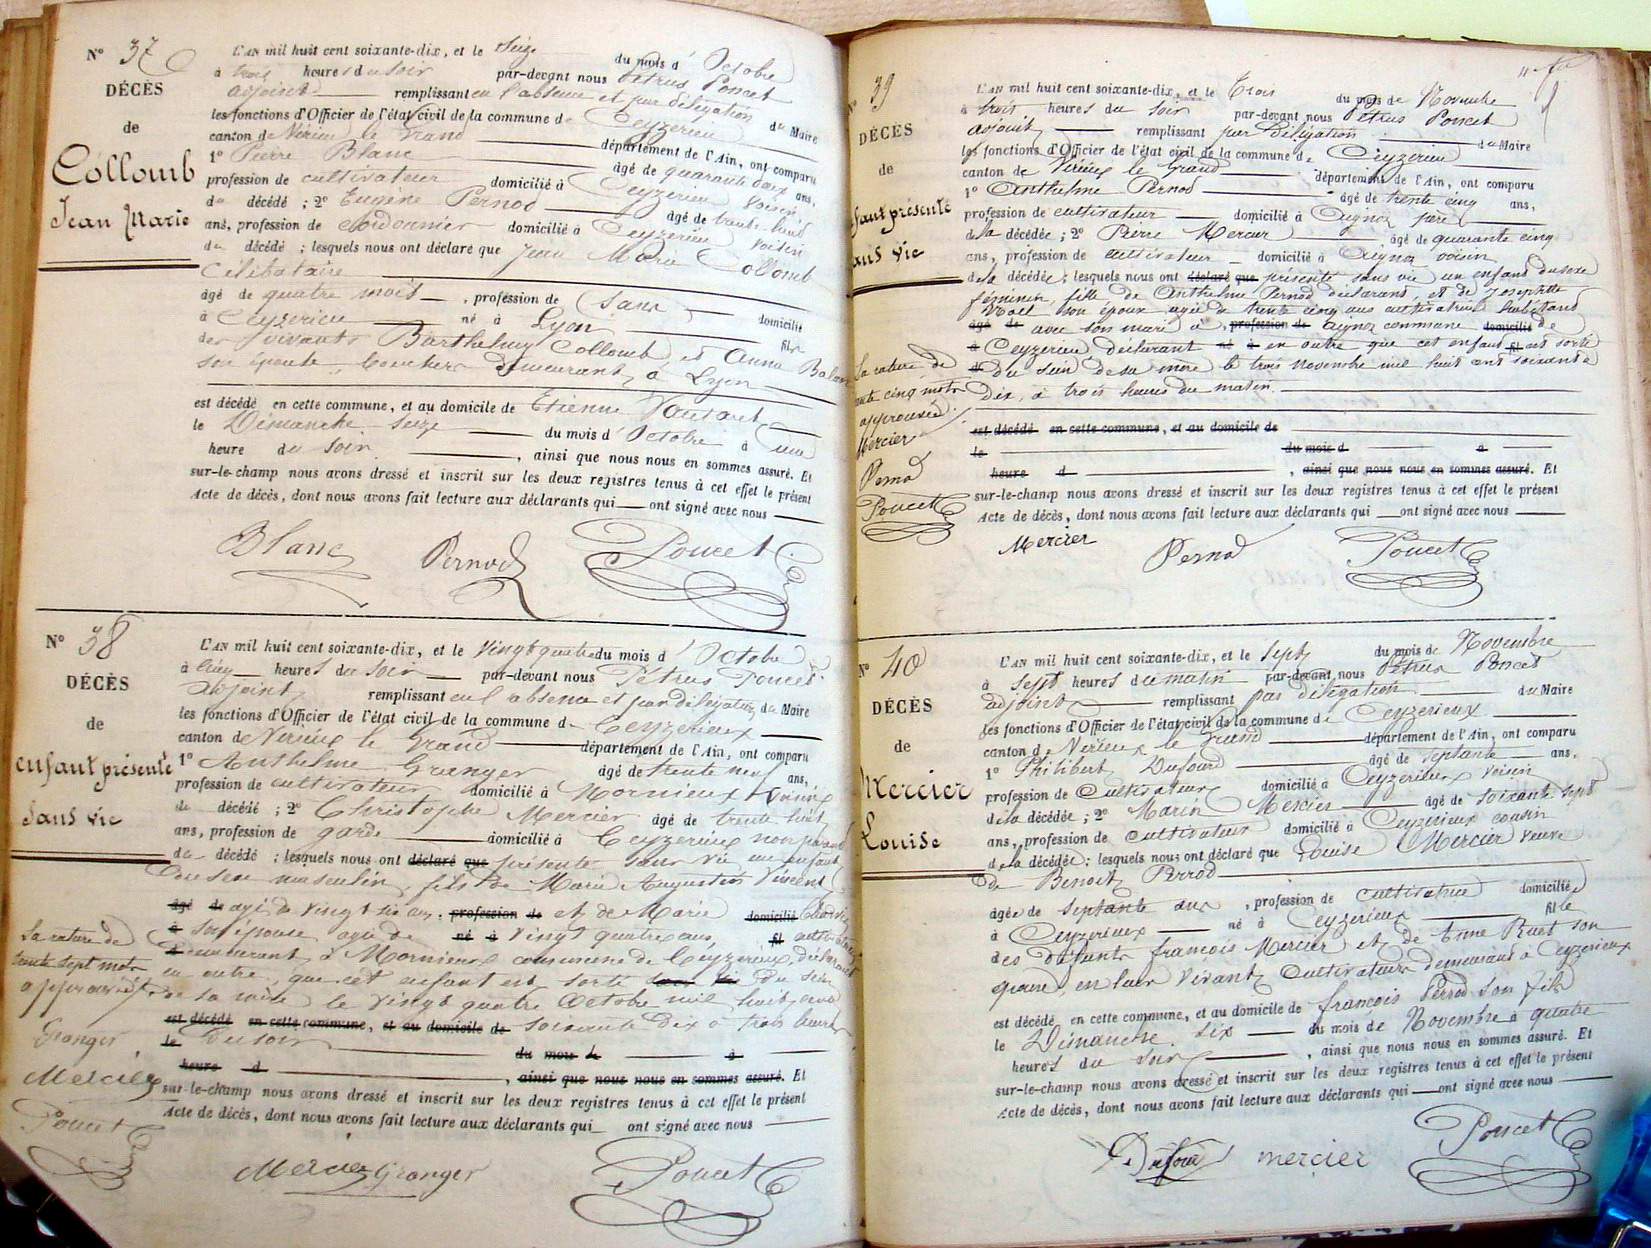 N° 37
DÉCÈS
de
Collomb
Jean Marie
L'AN mil huit cent soixante-dix, et le Seize du mois d' Octobre
à trois heures du soir par-devant nous Pétrus Poncet
adjoint remplissant en l'absence et par délégation du Maire
les fonctions d'Officier de l'état civil de la commune de Ceyzerieu
canton de Virieu le Grand département de l'Ain, ont comparu
1° Pierre Blanc âgé de quarante deux ans,
profession de cultivateur domicilié à Ceyzerieu voisin
du décédé ; 2° Eugène Pernod âgé de trente huit
ans, profession de Cordonnier domicilié à Ceyzerieu voisin
du décédé ; lesquels nous ont déclaré que Jean Marie Collomb
Célibataire
âgé de quatre mois , profession de Sans domicilié
à Ceyzerieu né à Lyon fils
des vivants Barthelmy Collomb et Anna
son épouse, demeurant à Lyon
est décédé en cette commune, et au domicile de Etienne
le Dimanche Seize du mois d' Octobre à une
heure du soir , ainsi que nous nous en sommes assuré. Et
sur-le-champ nous avons dressé et inscrit sur les deux registres tenus à cet effet le présent
Acte de décès, dont nous avons fait lecture aux déclarants qui ont signé avec nous
Blanc Pernod Poncet
N° 38
DÉCÈS
de
enfant présenté
sans vie
L'AN mil huit cent soixante-dix, et le Vingt quatre du mois d' Octobre
à cinq heures du soir par-devant nous Pétrus Poncet
adjoint remplissant en l'absence et par délégation du Maire
les fonctions d'Officier de l'état civil de la commune de Ceyzerieux
canton de Virieux le Grand département de l'Ain, ont comparu
1° Anthelme Granger âgé de trente neuf ans,
profession de cultivateur domicilié à Mornieux voisin
du décédé ; 2° Christophe Mercier âgé de trente huit
ans, profession de garde domicilié à Ceyzerieux non parent
du décédé ; lesquels nous ont déclaré que présenté sans vie un enfant
du sexe masculin, fils de Marie Augustin Vincent
âgé de agé de vingt six ans, profession de et de Marie domicilié
à son épouse agée de né à vingt quatre ans, fil
demeurant à Mornieux commune de Ceyzerieux, déclarant
en outre que cet enfant est sorti du sein
de sa mère le vingt quatre Octobre mil huit cent
est décédé en cette commune, et au domicile de soixante dix à trois heures
le du soir du mois d à
heure d , ainsi que nous nous en sommes assuré. Et
sur-le-champ nous avons dressé et inscrit sur les deux registres tenus à cet effet le présent
Acte de décès, dont nous avons fait lecture aux déclarants qui ont signé avec nous
La rature de
trente sept mots
approuvée
Granger
Mercier
Poncet
Mercier Granger Poncet
N° 39
DÉCÈS
de
enfant présenté
sans vie
L'AN mil huit cent soixante-dix, et le Trois du mois de Novembre
à trois heures du soir par-devant nous Pétrus Poncet
adjoint remplissant par délégation du Maire
les fonctions d'Officier de l'état civil de la commune de Ceyzerieu
canton de Virieux le Grand département de l'Ain, ont comparu
1° Anthelme Pernod âgé de trente cinq ans,
profession de cultivateur domicilié à Aignoz père
de la décédée ; 2° Pierre Mercier âgé de quarante cinq
ans, profession de cultivateur domicilié à Aignoz voisin
de la décédée ; lesquels nous ont déclaré que présenté sans vie un enfant du sexe
féminin, fille de Anthelme Pernod déclarant, et de Josephte
son épouse agée de trente cinq ans cultivatrice habitant
âgé de avec son mari à profession de Aignoz commune domicilié de
à Ceyzerieu déclarant né à en outre que cet enfant fil est sorti
du sein de sa mère le trois novembre mil huit cent soixante
dix, à trois heures du matin
est décédé en cette commune, et au domicile de
le du mois d à
heure d , ainsi que nous nous en sommes assuré. Et
sur-le-champ nous avons dressé et inscrit sur les deux registres tenus à cet effet le présent
Acte de décès, dont nous avons fait lecture aux déclarants qui ont signé avec nous
La rature de
trente cinq mots
approuvée
Mercier
Pernod
Poncet
Mercier Pernod Poncet
N° 40
DÉCÈS
de
Mercier
Louise
L'AN mil huit cent soixante-dix, et le Sept du mois de Novembre
à Sept heures du matin par-devant nous Pétrus Poncet
adjoint remplissant par délégation du Maire
les fonctions d'Officier de l'état civil de la commune de Ceyzerieux
canton de Virieux le Grand département de l'Ain, ont comparu
1° Philibert Dufour âgé de septante ans,
profession de Cultivateur domicilié à Ceyzerieux voisin
de la décédée ; 2° Marin Mercier âgé de soixante sept
ans, profession de Cultivateur domicilié à Ceyzerieux cousin
de la décédée ; lesquels nous ont déclaré que Louise Mercier veuve
de Benoit Perrod
âgée de septante ans , profession de cultivatrice domiciliée
à Ceyzerieux né à Ceyzerieux fille
des défunts françois Mercier et de Anne Ruet son
épouse, en leur vivant Cultivateurs demeurant à Ceyzerieux
est décédé en cette commune, et au domicile de françois Perrod son fils
le Dimanche Six du mois de Novembre à quatre
heures du soir , ainsi que nous nous en sommes assuré. Et
sur-le-champ nous avons dressé et inscrit sur les deux registres tenus à cet effet le présent
Acte de décès, dont nous avons fait lecture aux déclarants qui ont signé avec nous
Dufour mercier Poncet